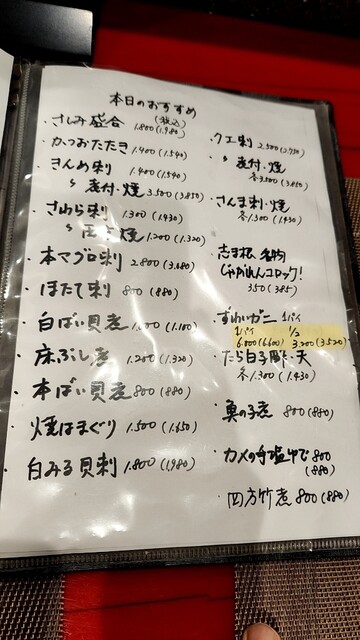 本日のおすすめ
(税込)
・さしみ盛合 1.800(1.980)
・かつおたたき 1.400(1.540)
・きんめ刺 1.400(1.540)
〃 煮付・焼 3.500(3.850)
・さわら刺 1.300(1.430)
〃 焼 1.200(1.320)
・本マグロ刺 2.800
・ほたて刺 800(880)
・白ばい貝煮 (1.100)
・床ぶし煮 1.200(1.320)
・本ばい貝煮 800(880)
・焼はまぐり 1.500(1.650)
・白みる貝刺 1.800(1.980)
・クエ刺 2.500(2.750)
・〃 煮付・焼
各3.500(3.850)
・さんま刺・焼
各1.300(1.430)
・志ま根 名物
コロッケ!
350(385)
・ずわいガニ 1パイ
1パイ 1/2
6.000(6.600) 3.200(3.520)
・たら白子酢・天
各1.300(1.430)
・真の子煮 800(880)
・カメの手塩ゆで 800
(880)
・四方竹煮 800(880)